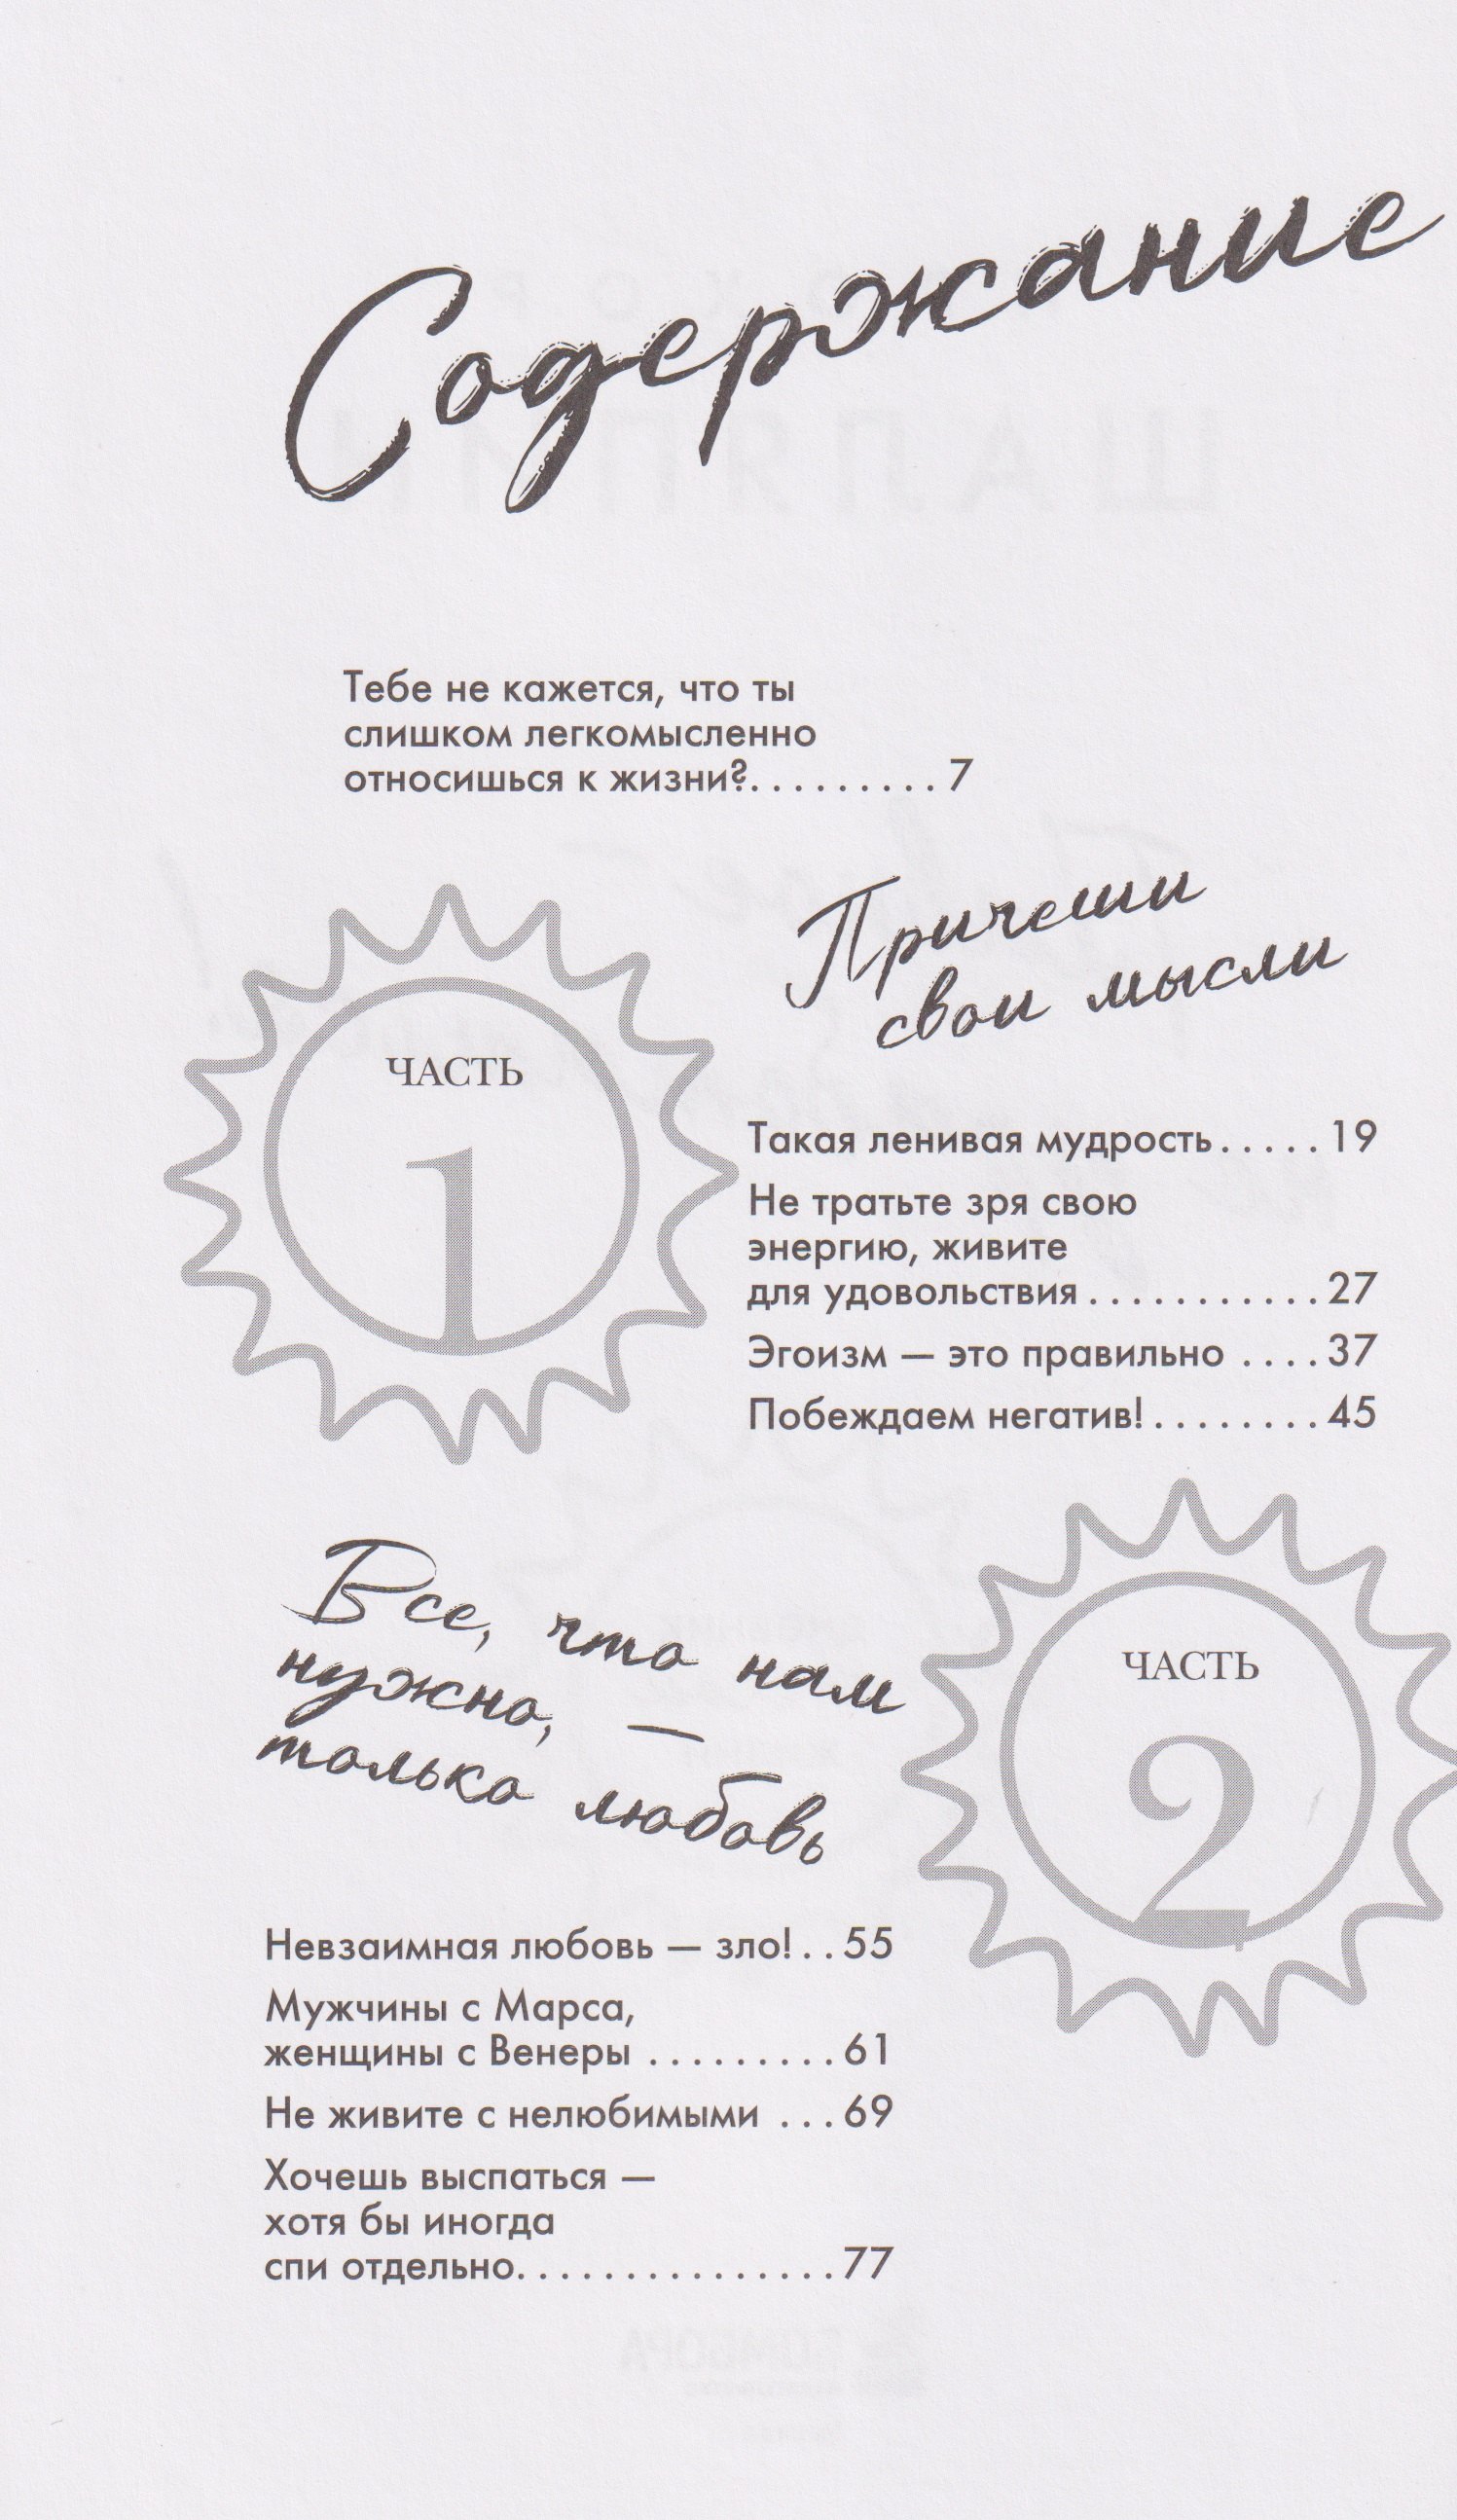 Содержание
Тебе не кажется, что ты
слишком легкомысленно
относишься к жизни?. . . . . . . . . 7
ЧАСТЬ
1
Причеши
свои мысли
Такая ленивая мудрость. . . . . 19
Не тратьте зря свою
энергию, живите
для удовольствия . . . . . . . . . . . 27
Эгоизм — это правильно . . . . 37
Побеждаем негатив! . . . . . . . . 45
ЧАСТЬ
2
Все, что нам
нужно, —
только любовь
Невзаимная любовь — зло! . . 55
Мужчины с Марса,
женщины с Венеры . . . . . . . . . 61
Не живите с нелюбимыми . . . 69
Хочешь выспаться —
хотя бы иногда
спи отдельно. . . . . . . . . . . . . . . 77